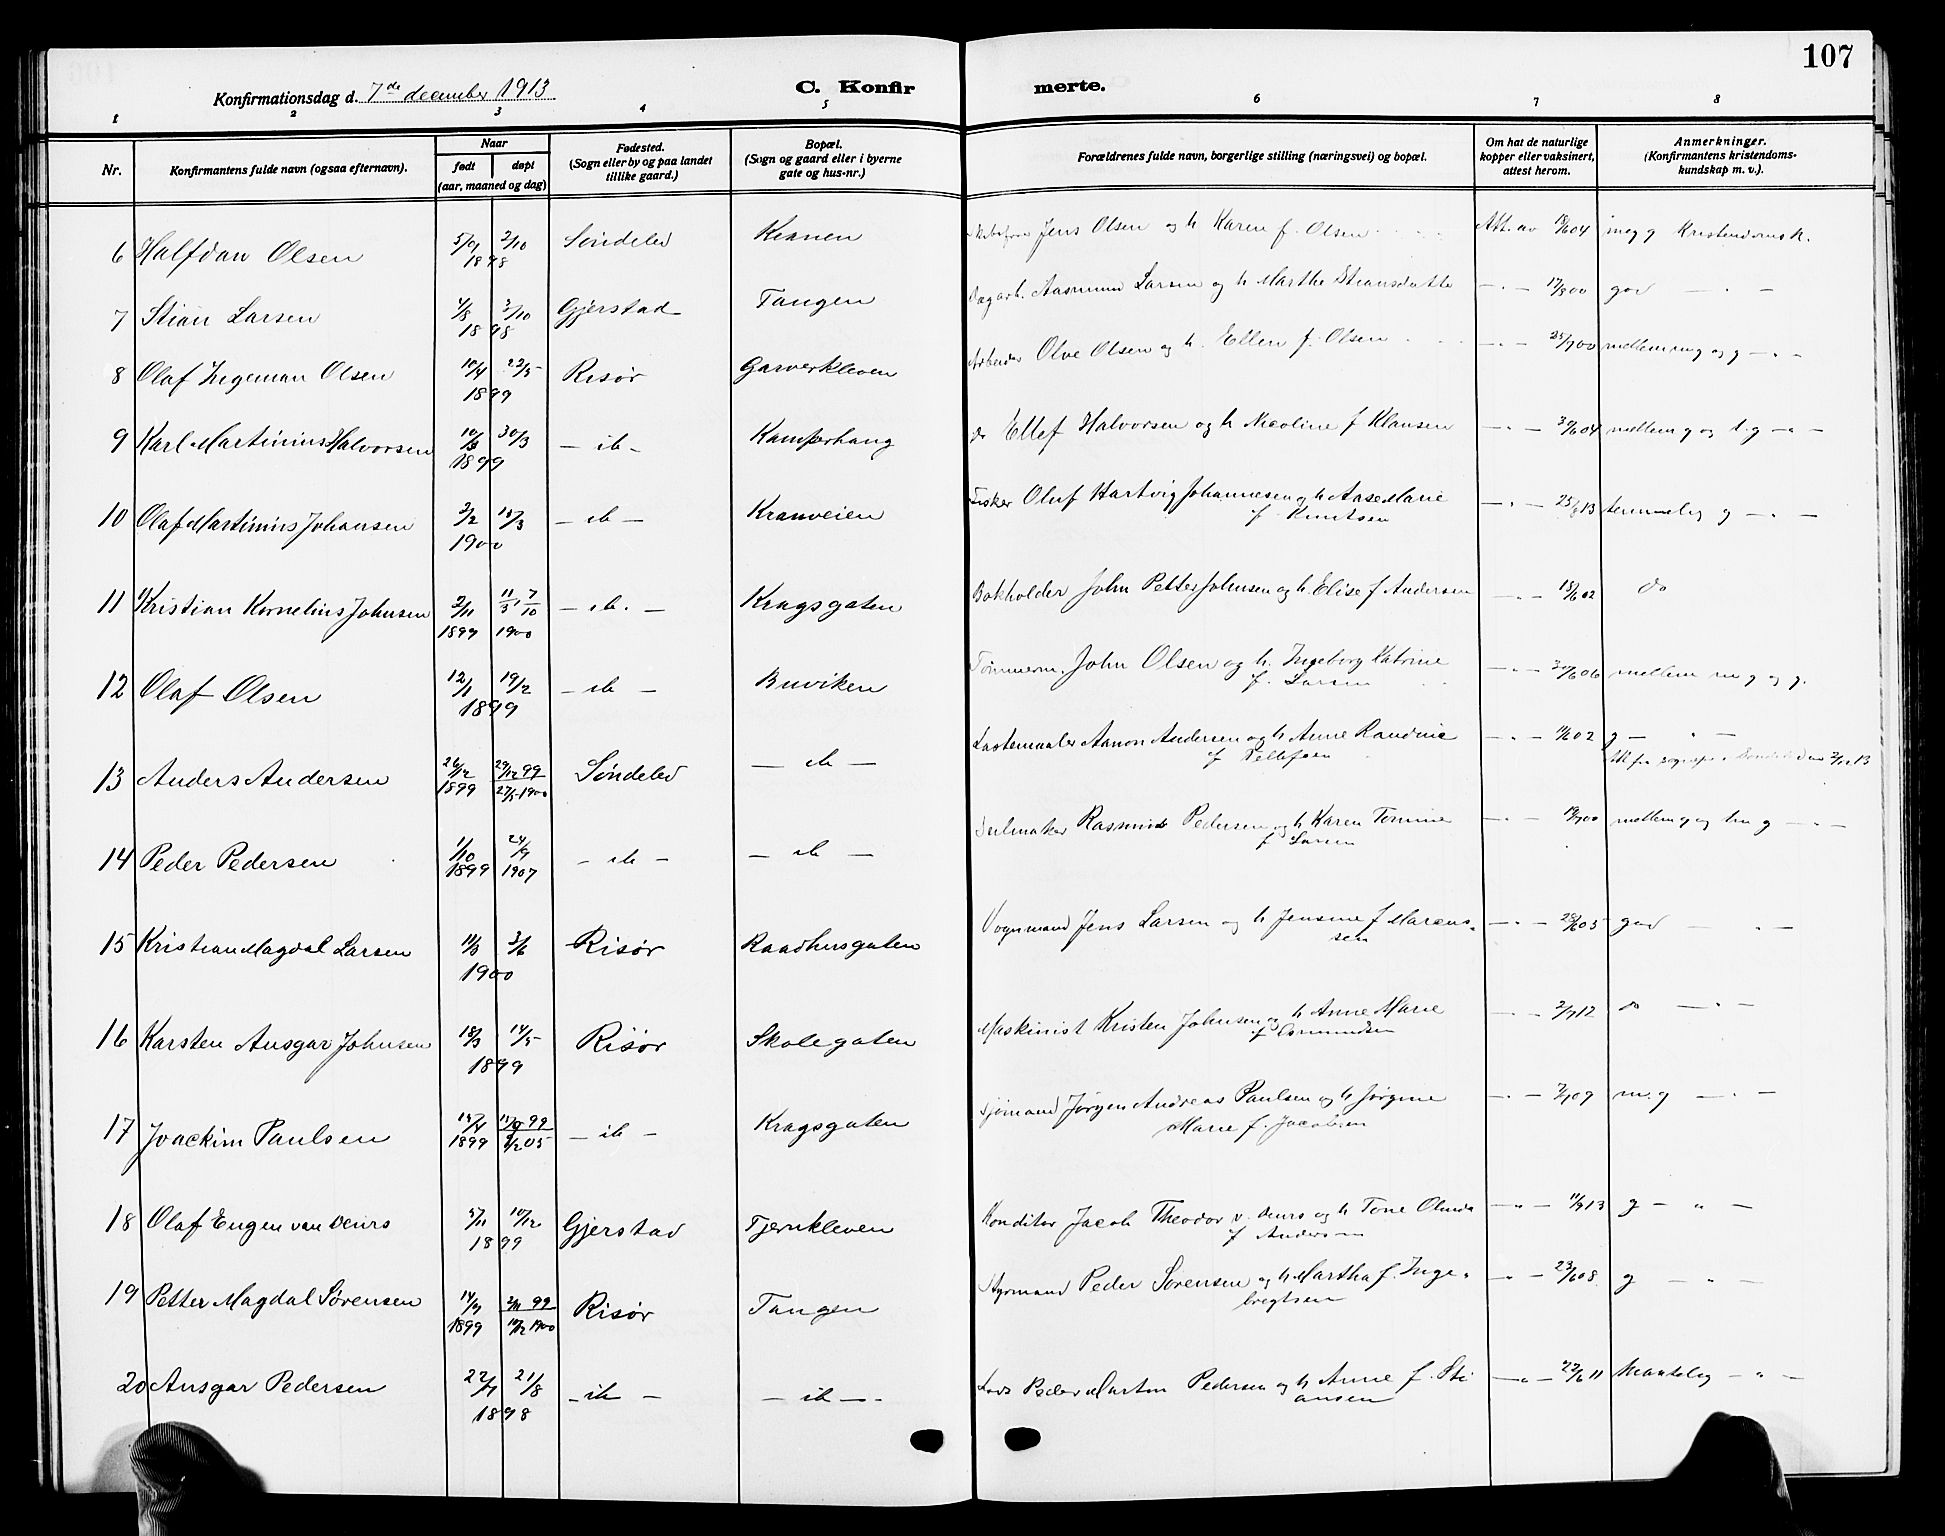 107
Konfirmationsdag d. 7de december 1913 C. Konfirmerte.
1 2 3 4 5 6 7 8
Nr. Konfirmantens fulde navn (ogsaa efternavn). Naar født døpt (aar, maaned og dag) Fødested. (Sogn eller by og paa landet tillike gaard.) Bopæl. (Sogn og gaard eller i byerne gate og hus-nr.) Forældrenes fulde navn, borgerlige stilling (næringsvei) og bopæl. Om hat de naturlige kopper eller vaksinert, attest herom. Anmerkninger. (Konfirmantens kristendoms-kundskap m. v.).
6 Halfdan Olsen 5/9 2/10 1898 Søndeled Kranen Jens Olsen og h Karen f. Olsen Att. av 18/6 04 meg g Kristendomsk.
7 Stian Larsen 4/8 2/10 1898 Gjerstad Tangen Dagarb. Aasmund Larsen og h Marthe Stiansdatter — " — 17/8 00 god — " —
8 Olaf Ingeman Olsen 10/4 22/5 1899 Risør Garverkleven Arbeider Olve Olsen og h. Ellen f. Olsen — " — 25/7 00 mellem mg og g — " —
9 Karl Martinius Halvorsen 10/3 30/3 1899 — ib — Kamperhaug do Ellef Halvorsen og h Nicoline f Klausen — " — 30/6 04 mellem g og t. g — " —
10 Olaf Martinius Johansen 3/2 18/3 1900 — ib — Kranveien Fisker Oluf Hartvig Johannesen og h Aase Marie
f. Knutsen — " — 25/6 13 temmelig g — " —
11 Kristian Kornelius Johnsen 2/11 1899 11/3, 7/10 1900 — ib. — Kragsgaten Bokholder John Petter Johnsen og h Elise f Andersen — " — 18/6 02 do
12 Olaf Olsen 12/1 19/2 1899 — ib — Buviken Tømmerm. John Olsen og h. Ingeborg Katrine
f. Larsen — " — 30/6 06 mellem m g og g.
13 Anders Andersen 26/12 1899 29/12 99 27/5 1900 Søndeled — ib — Lastemaaler Aanon Andersen og h Anne Randine
f Tellefsen — " — 11/6 02 g — " —
14 Peder Pedersen 1/10 1899 24/9 1907 — ib — — ib — Seilmaker Rasmus Pedersen og h Karen Tomine
f Larsen — " — 19/7 00 mellem g og tm g — " —
15 Kristian Magdal Larsen 11/3 3/6 1900 Risør Raadhusgaten Vognmand Jens Larsen og h Jensine f Marens-
sen — " — 28/6 05 god — " —
16 Karsten Ansgar Johnsen 18/3 14/5 1899 Risør Skolegaten Maskinist Kristen Johnsen og h Anne Marie
f Osmundsen — " — 2/7 12 do — " —
17 Joackim Paulsen 15/4 1899 — ib — Kragsgaten Sjømand Jørgen Andreas Paulsen og h Jørgine
Marie f. Jacobsen — " — 7/1 09 m. g — " —
18 Olaf Eugen van Deurs 5/11 10/12 1899 Gjerstad Tjernkleven Konditor Jacob Theodor v. Deurs og h Tone Olinda
f Andersen — " — 11/9 13 g — " —
19 Petter Magdal Sørensen 14/9 1899 2/11 99 1900 Risør Tangen Styrmand Peder Sørensen og h Martha f. Inge-
bregtsen — " — 23/6 08 g — " —
20 Ansgar Pedersen 22/7 21/8 1898 — ib — — ib — Lods Peder Marton Pedersen og h Anne f. Sti
ansen — " — 22/6 11 Maatelig — " —